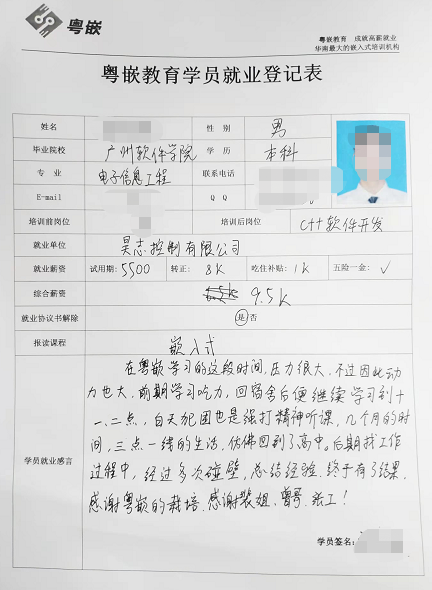 粤嵌
粤嵌教育 成就高薪就业
华南最大的嵌入式培训机构
粤嵌教育学员就业登记表
姓名 性 别 男
毕业院校 广州软件学院 学 历 本科
专 业 电子信息工程 联系电话
E-mail Q Q
培训前岗位 培训后岗位 C++软件开发
就业单位 昊志控制有限公司
就业薪资 试用期:5500 转正: 8K 吃住补贴:1K 五险一金: ✓
综合薪资 9.5K
就业协议书解除 是否
报读课程 嵌入式
在粤嵌学习的这段时间,压力很大,不过因此动
力也大,前期学习吃力,回宿舍后便继续学习到十
一、二点,白天犯困也是强打精神听课,几个月的时
间,三点一线的生活,仿佛回到了高中。后期找工作
过程中,经过多次碰壁,总结经验,终于有了结果,
感谢粤嵌的栽培、感谢裴姐、曾哥、张工!
学员就业感言
学员签名: